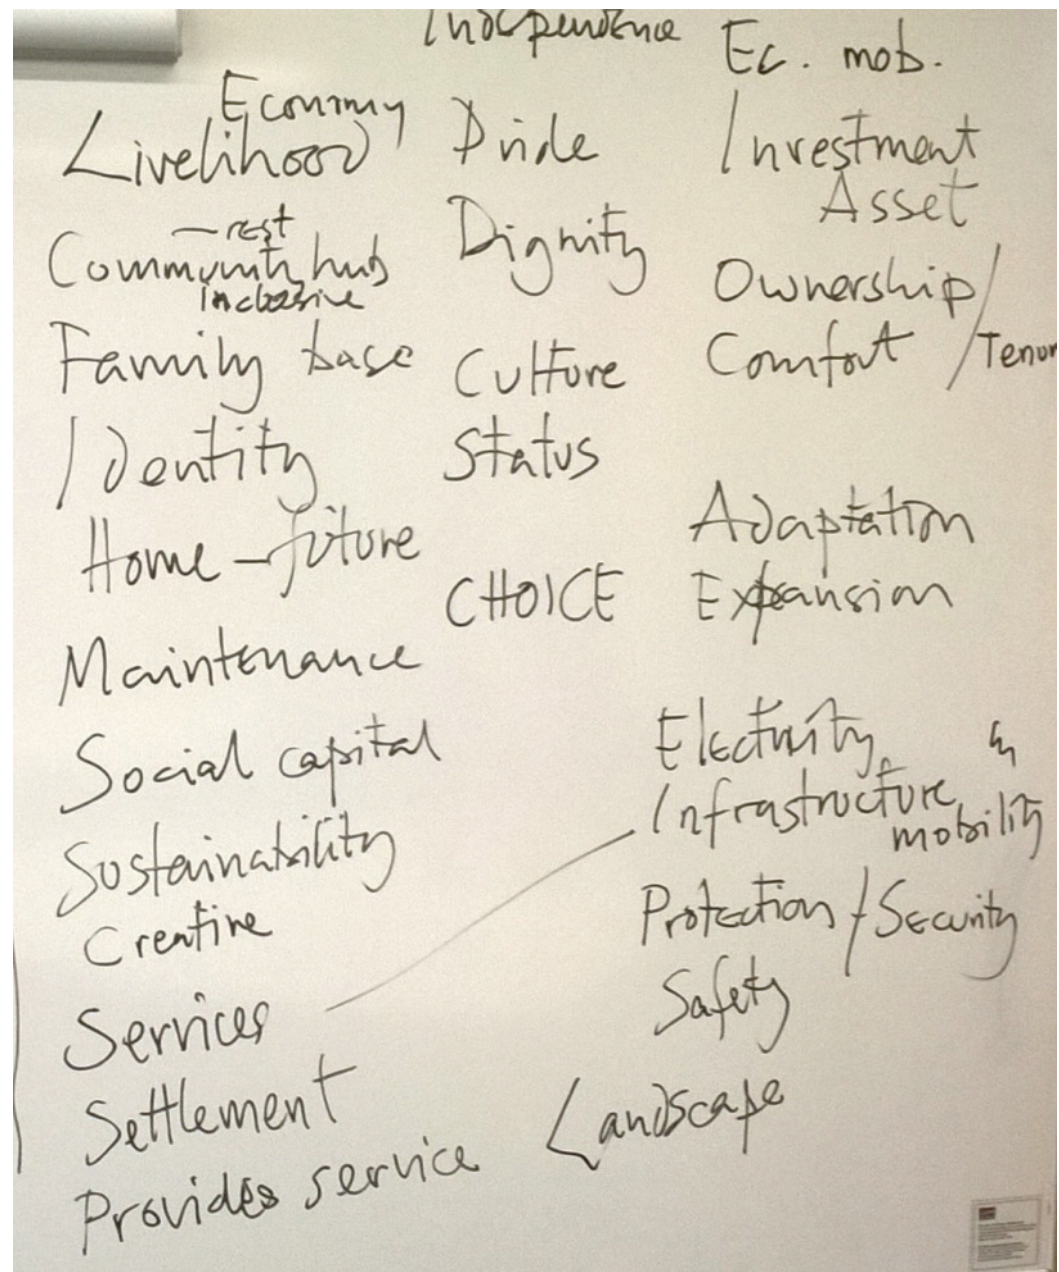 Independence
Economy
Livelihood
– rest
Community hub
Inclusive
Family base
Identity
Home – future
Maintenance
Social capital
Sustainability
Creative
Services
Settlement
Provides service
Pride
Dignity
Culture
Status
CHOICE
Ec. mob.
Investment
Asset
Ownership/
Comfort / Tenur
Adaptation
Expansion
Electricity
Infrastructure
mobility
Protection / Security
Safety
Landscape